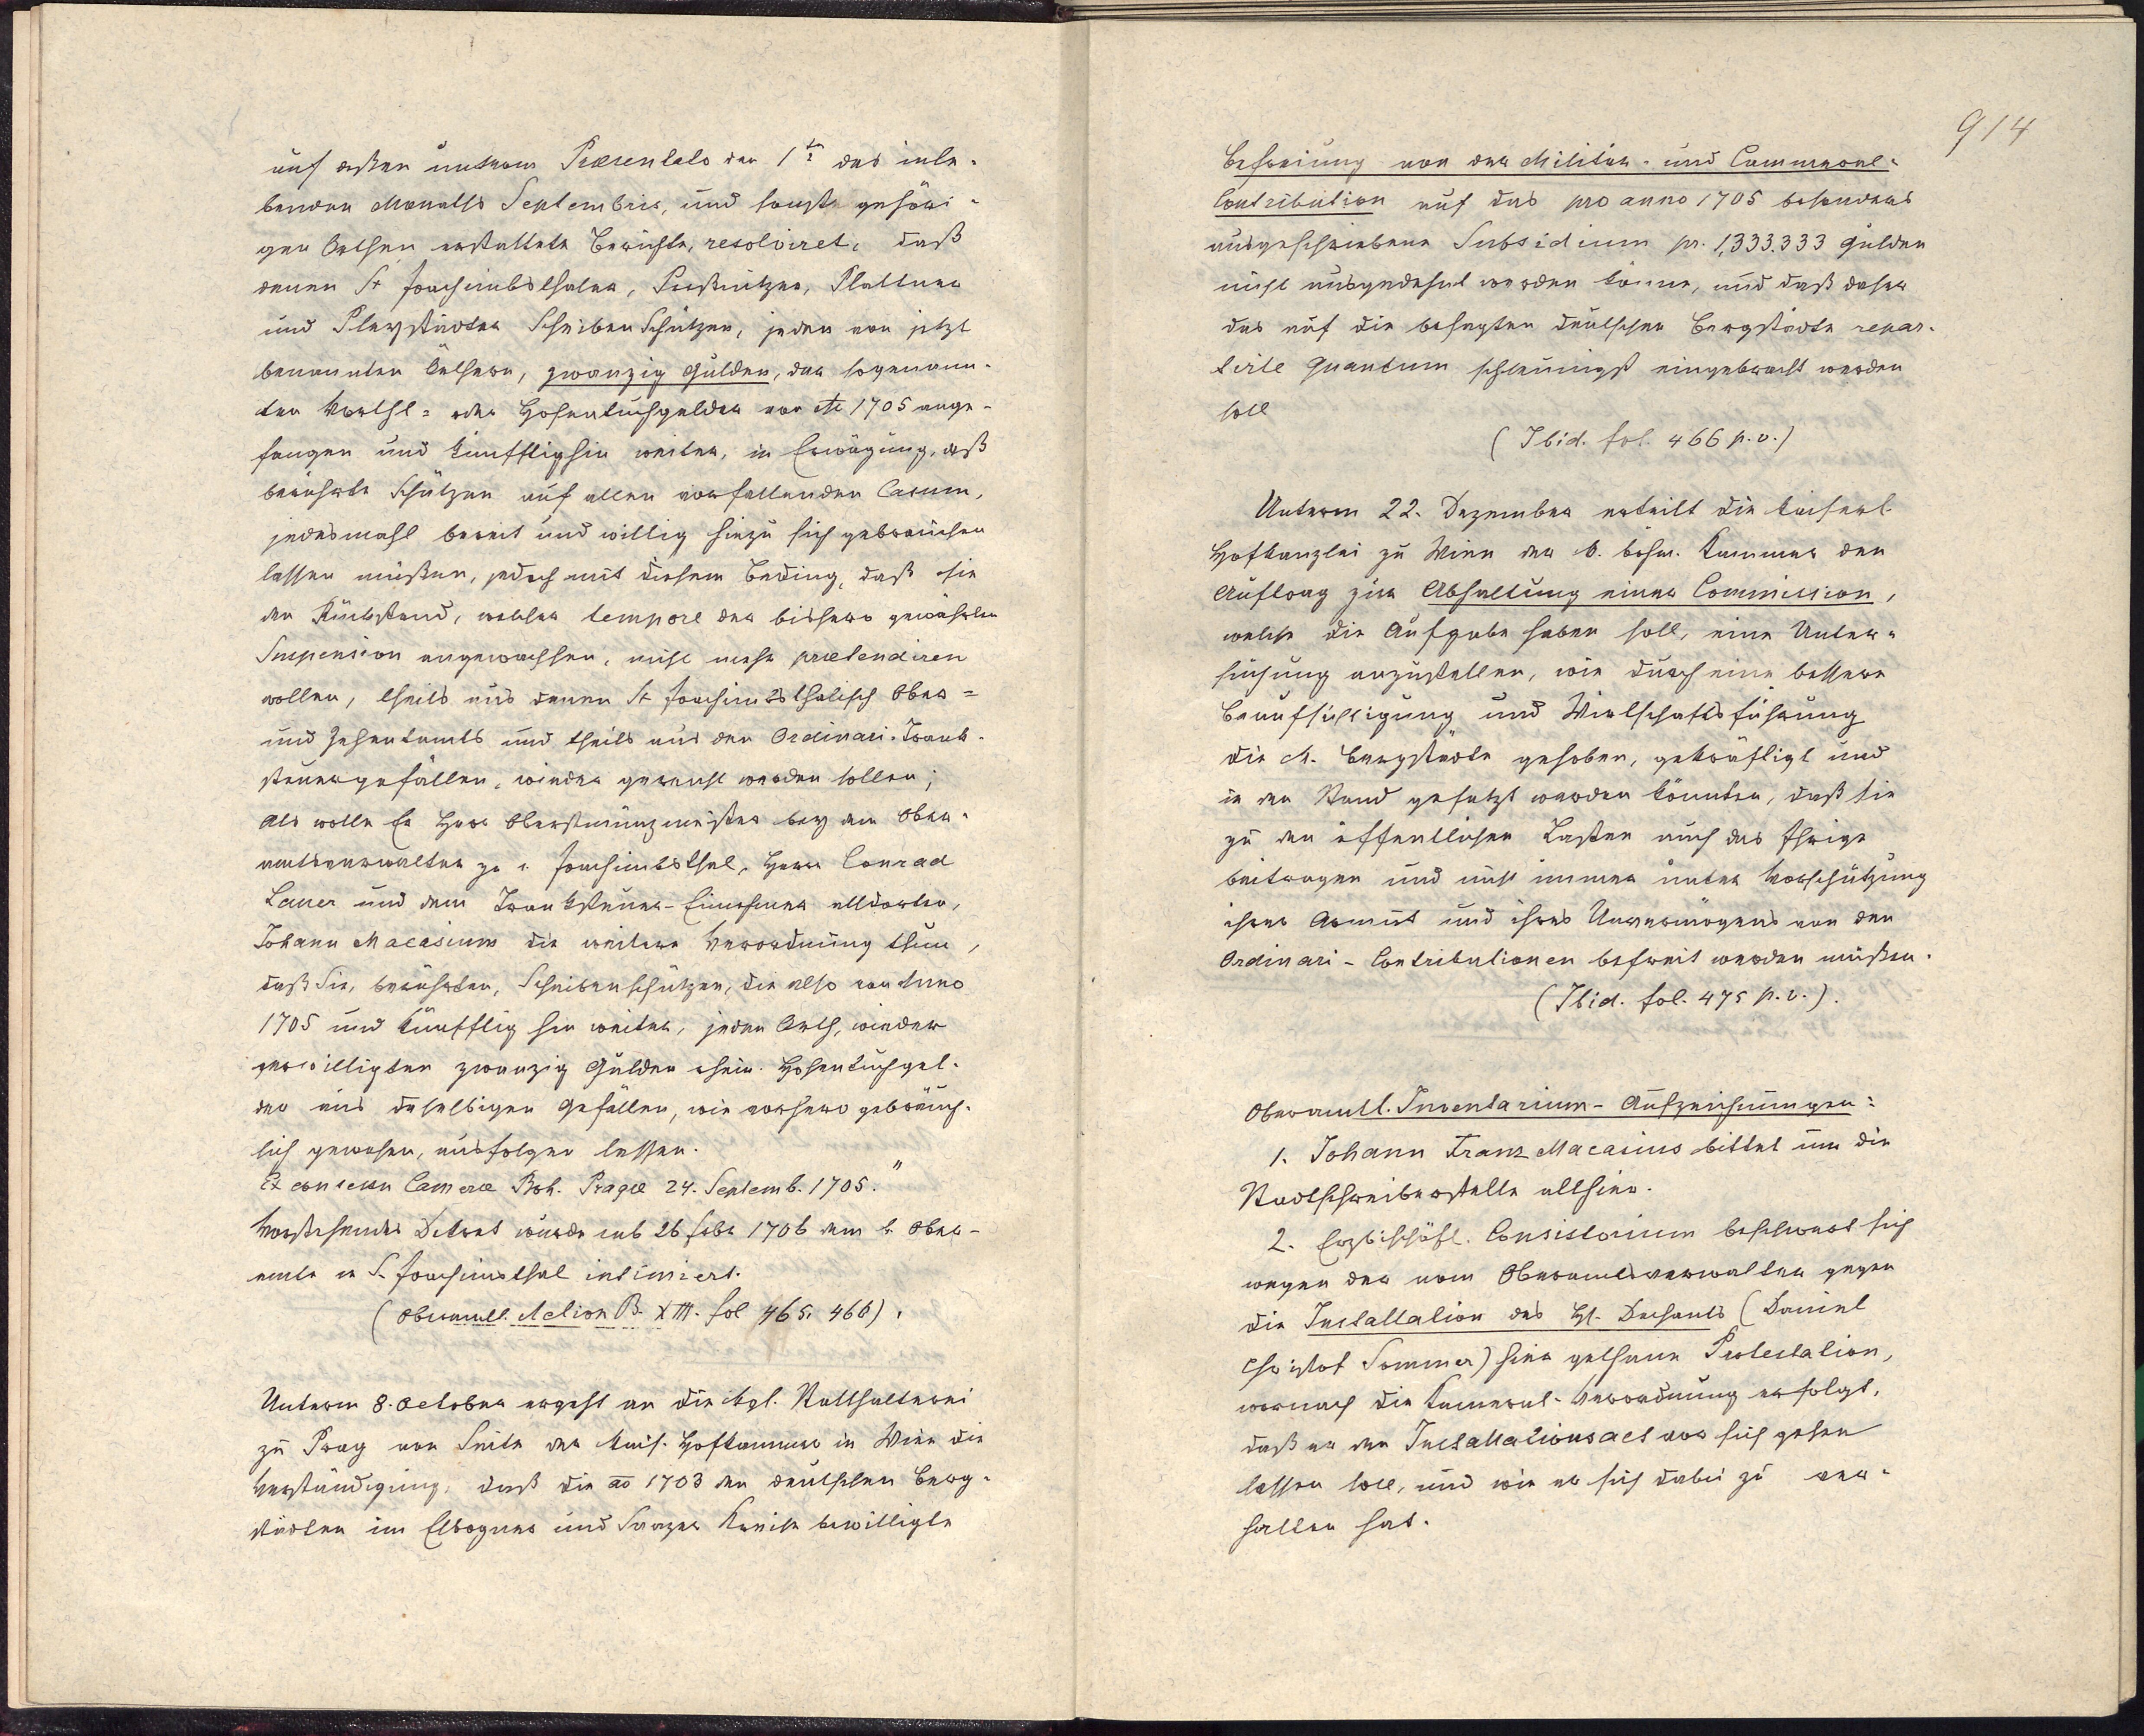 auf dessen unterm Præsentato den 1ten des inle-
benden Monaths Septembris, und sonst gehöri-
gen Orthen erstattete Berichte, resolviret, daß
denen St Joachimbsthaler, Preßnitzer, Plattner
und Pleystädter Scheiben Schützen, jeden von jetzt
benannten Örthern, zwanzig Gulden, der sogenann-
ten Vorthl- oder Hosentuchgelder von Ao 1705 ange-
fangen und künfftighin weiter, in Erwägung, daß
berührte Schützen auf allen vorfallenden Casum,
jedesmahl bereit und willig hiezu sich gebrauchen
lassen müßen, jedoch mit diesem Beding, daß sie
den Rückstand, welcher tempore der bishero gewährten
Suspension angewachsen, nicht mehr prætendiren
wollen, theils aus denen St Joachimbsthalisch Ober-
und Zehentamts und theils aus den Ordinari-Trank-
steuergefällen, wieder gereicht werden sollen;
Als wolle Er Herr Oberstmünzmeister bey dem Ober-
amtsverwalter zu St. Joachimbsthal, Herrn Conrad
Lauer und dem Tranksteuer-Einnehmer alldorten,
Johann Macasium die weitere Verordnung thun,
daß Sie, berührten, Scheibenschützen, die also von Anno
1705 und künfftig hin weiter, jeden Orth, wieder
verwilligten zwanzig Gulden rhein. Hosentuchgel-
der aus daselbigen Gefällen, wie vorhero gebräuch-
lich gewesen, ausfolgen lassen.
Ex consessu Cameræ Boh. Pragæ 24. Septemb. 1705."
Vorstehendes Dekret wurde sub 26 febr 1706 dem k. Ober-
amte in S. Joachimsthal intimiert.
(Oberamtl. Action B. XIII. fol 465. 466).
Unterm 8. October ergeht an die kgl. Statthalterei
zu Prag von Seite der kais. Hofkammer in Wien die
Verständigung, daß die ao 1703 den deutschen Berg-
städten im Elbogner und Saazer Kreise bewilligte
914
Befreiung von der Militär- und Cammeral-
Contribution auf das pro anno 1705 besonders
ausgeschriebene Subsidium pr. 1,333.333 Gulden
nicht ausgedehnt werden könne, und daß daher
das auf die besagten deutschen Bergstädte repar-
tirte Quantum schleunigst eingebracht werden
soll
(Ibid. fol. 466 p.v.)
Unterm 22. Dezember erteilt die kaiserl.
Hofkanzlei zu Wien der k. böhm. Kammer den
Auftrag zur Abhaltung einer Commission,
welche die Aufgabe haben soll, eine Unter-
suchung anzustellen, wie durch eine bessere
Beaufsichtigung und Wirtschaftsführung
die k. Bergstädte gehoben, gekräftigt und
in den Stand gesetzt werden könnten, daß sie
zu den öffentlichen Lasten auch das Ihrige
beitragen und nicht immer unter Vorschützung
ihrer Armut und ihres Unvermögens von den
Ordinari-Contributionen befreit werden müßen.
(Ibid. fol. 475 p.v.).
Oberamtl. Inventarium-Aufzeichnungen:
1. Johann Franz Macasius bittet um die
Stadtschreiberstelle allhier.
2. Erzbischöfl. Consistorium beschwert sich
wegen der vom Oberamtsverwalter gegen
die Installation des Hl. Dechants (Daniel
Christof Sommer) hier gethane Protestation,
wornach die Kameral-Verordnung erfolgt,
daß er den Installationsact vor sich gehen
lassen soll, und wie er sich dabei zu ver-
halten hat.